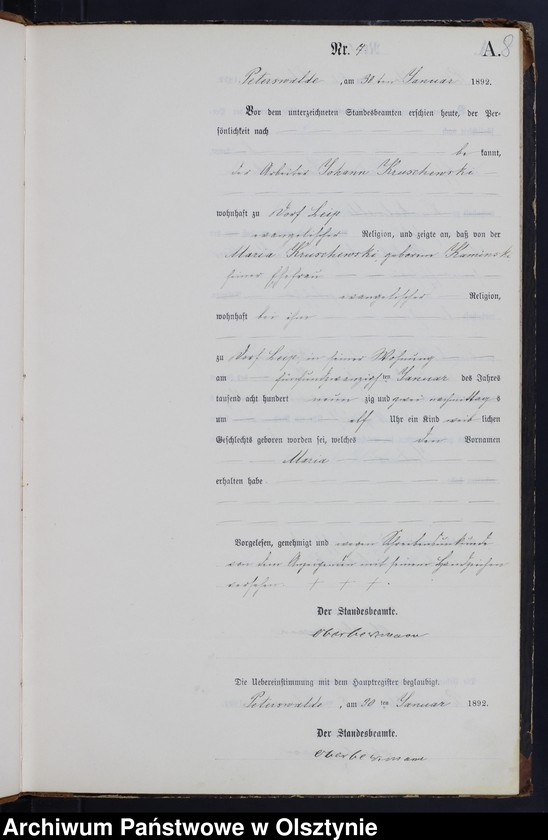 Nr. 7 A. 8
Peterswalde, am 30ten Januar 1892.
Vor dem unterzeichneten Standesbeamten erschien heute, der Per-
sönlichkeit nach
be kannt,
der Arbeiter Johann Kruschewske
wohnhaft zu Dorf Leip
evangelischer Religion, und zeigte an, daß von der
Maria Kruschewske geborene Kaminsk
seiner Ehefrau
evangelischer Religion,
wohnhaft bei ihm
zu Dorf Leip in seiner Wohnung
am fünfundzwanzigsten Januar des Jahres
tausend acht hundert neun zig und zwei nachmittags
um elf Uhr ein Kind weib lichen
Geschlechts geboren worden sei, welches den Vornamen
Maria
erhalten habe
Vorgelesen, genehmigt und wegen Schreibensunkunde
von dem Anzeigenden mit seinem Handzeichen
versehen. + + +.
Der Standesbeamte.
Oberbermann
Die Uebereinstimmung mit dem Hauptregister beglaubigt.
Peterswalde, am 30ten Januar 1892.
Der Standesbeamte.
Oberbermann
Archiwum Państwowe w Olsztynie